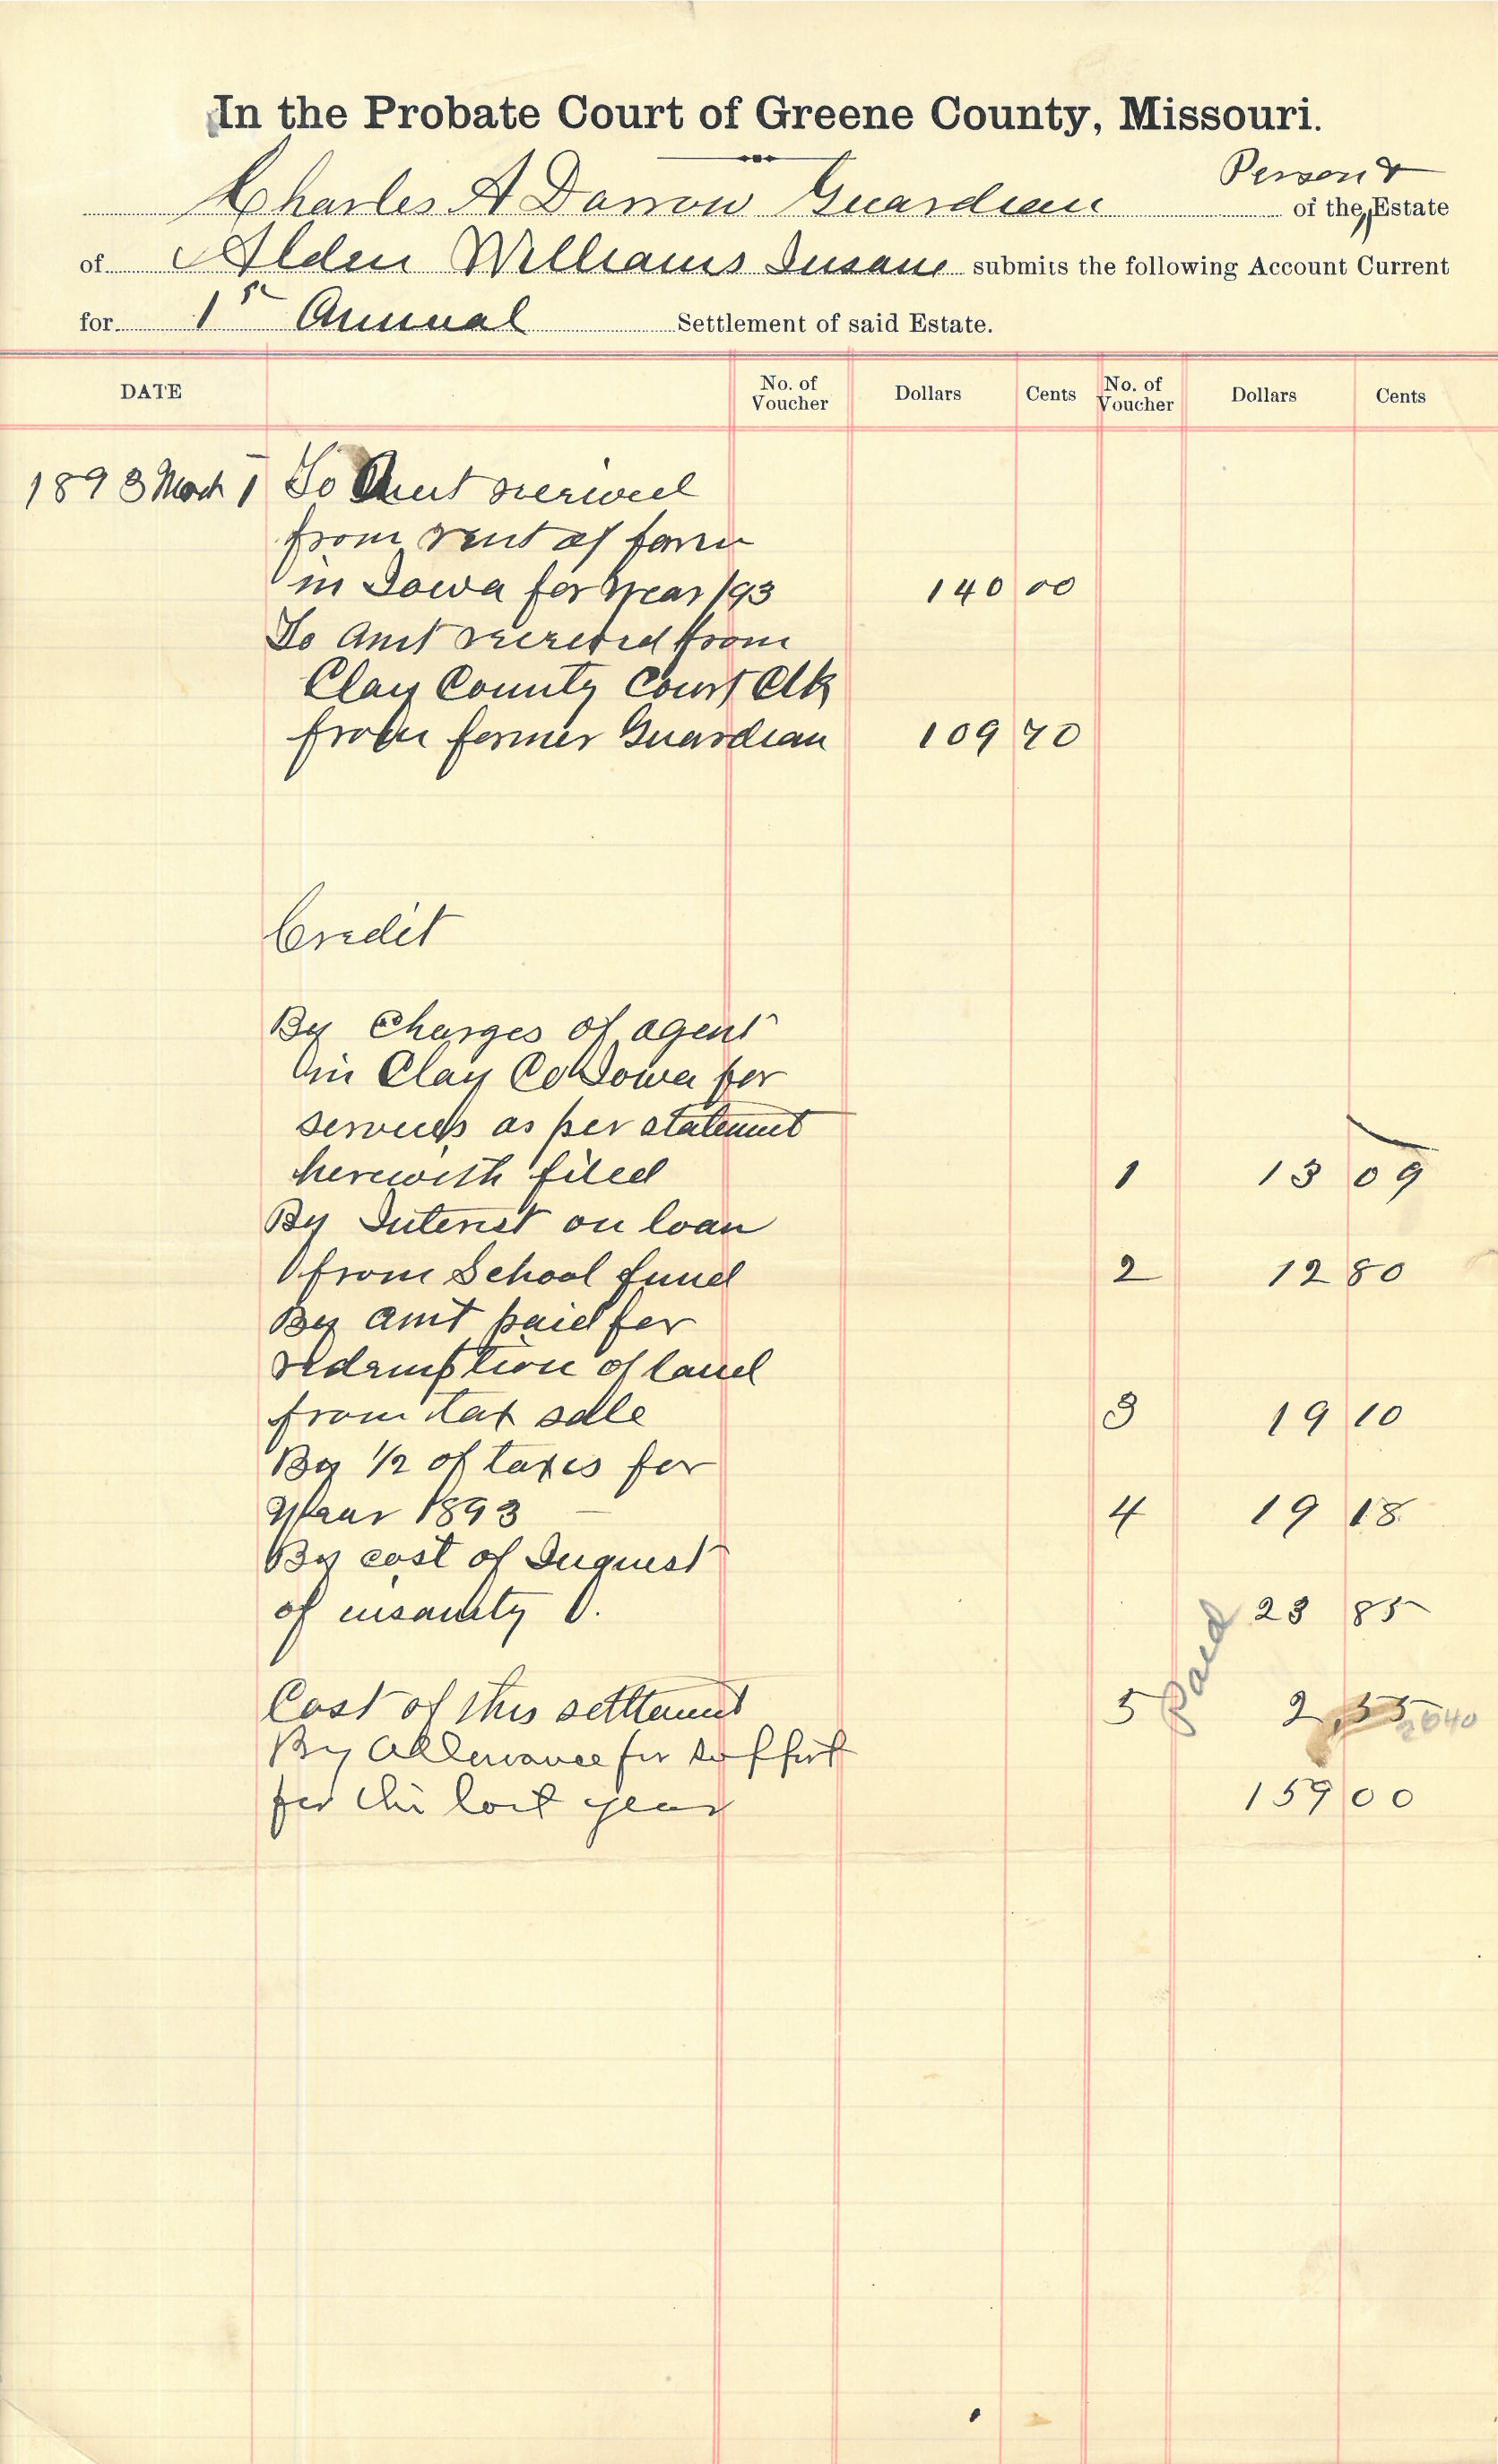 In the Probate Court of Greene County, Missouri.
Person &
Charles A Darrow Guardian of the Estate
of Alden Williams Insane submits the following Account Current
for 1st Annual Settlement of said Estate.
DATE No. of Voucher Dollars Cents No. of Voucher Dollars Cents
1893 March 1 To Amt received
from rent of farm
in Iowa for year /93 140 00
To Amt received from
Clay County Court Clk
from former Guardian 109 70
Credit
By Charges of agent
in Clay Co Iowa for
services as per statement
herewith filed 1 13 09
By Interest on loan
from School fund 2 12 80
By amt paid for
redemption of land
from tax sale 3 19 10
By 1/2 of taxes for
year 1893 4 19 18
By cost of Inquest
of insanity 23 85
Paid
Cost of this settlement 5 2
By Allowance for support
for the last year 159 00